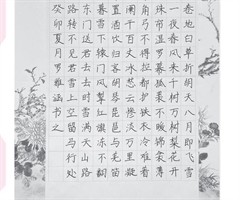 卷地白草折胡天八月即飞雪
一夜春风来千树万树梨花开
珠帘湿罗幕狐裘不暖锦衾薄
角弓不得控都护铁衣冷难着
阑干百丈冰愁云惨淡万里凝
置酒饮归客胡琴琵琶与羌笛
暮雪下辕门风掣红旗冻不翻
东门送君去去时雪满天山路
路转不见君雪上空留马行处
癸卯夏月罗雅涵书之